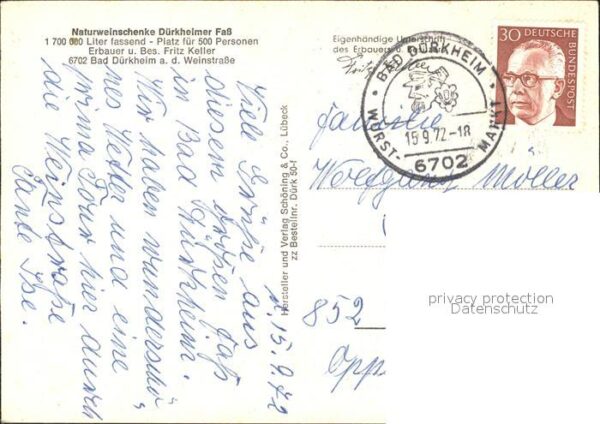 Naturweinschenke Dürkheimer Faß
1 700 000 Liter fassend - Platz für 500 Personen
Erbauer u. Bes. Fritz Keller
6702 Bad Dürkheim a. d. Weinstraße
Eigenhändige Unterschrift
des Erbauers
Fritz Keller
BAD DÜRKHEIM
15.9.72-18
WURST- MARKT
6702
30 DEUTSCHE BUNDESPOST
d. 15.9.72
Viele Grüße aus
diesem großen Faß
in Bad Dürkheim.
Wir haben wunderschö-
nes Wetter und eine
prima Tour hier durch
die Weinstraße
Tante Ilse.
Hersteller und Verlag Schöning & Co., Lübeck
zz Bestellnr. Dürk 50-l
Familie
Wolfgang Möller
852
privacy protection
Datenschutz